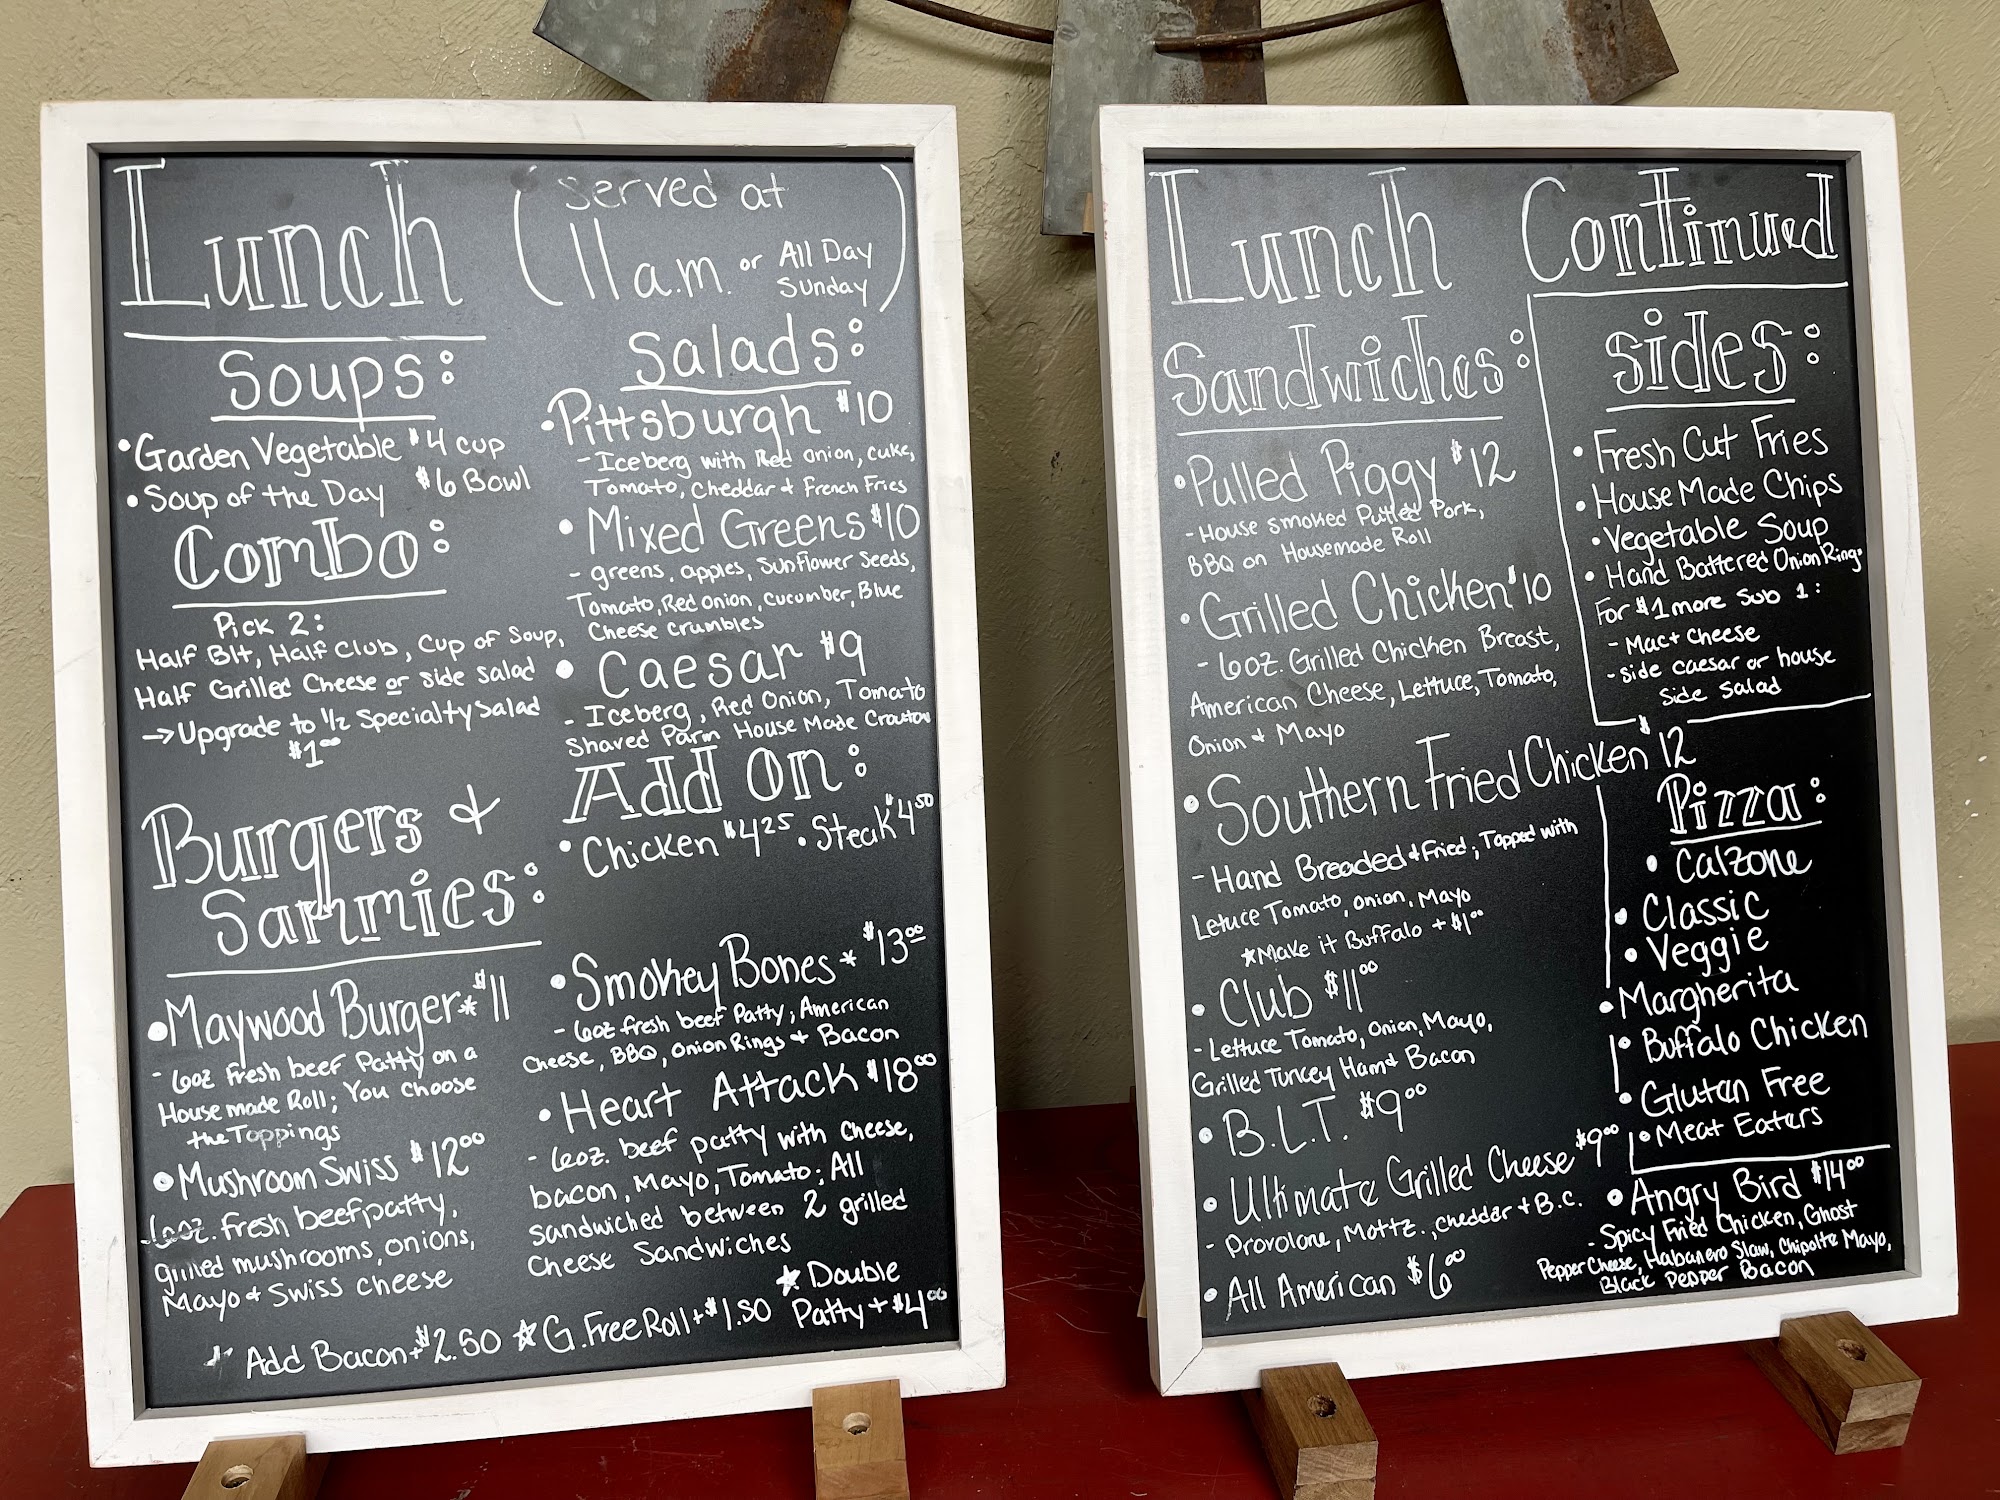 Lunch (served at
11 a.m. or All Day
Sunday)
Soups:
•Garden Vegetable $4 cup
•Soup of the Day $6 Bowl
Combo:
Pick 2:
Half Blt, Half Club, Cup of Soup,
Half Grilled Cheese or side salad
→Upgrade to 1/2 Specialty Salad
$1.00
Salads:
•Pittsburgh $10
- Iceberg with Red onion, cuke,
Tomato, Cheddar + French Fries
• Mixed Greens $10
- greens, apples, Sunflower Seeds,
Tomato, Red onion, cucumber, Blue
Cheese crumbles
• Caesar $9
- Iceberg, Red Onion, Tomato
Shaved Parm House Made Crouton
Add On:
• Chicken $4.25 • Steak $4.50
Burgers +
Sammies:
•Maywood Burger* $11
- 6oz fresh beef Patty on a
House made Roll; You choose
the Toppings
•Mushroom Swiss $12.00
-6oz. fresh beef patty,
grilled mushrooms, onions,
Mayo + Swiss cheese
•Smokey Bones* $13.00
- 6oz fresh beef Patty; American
Cheese, BBQ, Onion Rings + Bacon
• Heart Attack $18.00
- 6oz. beef patty with cheese,
bacon, Mayo, Tomato; All
sandwiched between 2 grilled
Cheese Sandwiches
* Add Bacon + $2.50 ☆G.Free Roll + $1.50 ★Double
Patty + $4.00
Lunch Continued
Sandwiches:
•Pulled Piggy $12
- House smoked Pulled Pork,
BBQ on Housemade Roll
• Grilled Chicken $10
- 6oz. Grilled Chicken Breast,
American Cheese, Lettuce, Tomato,
Onion + Mayo
• Southern Fried Chicken $12
- Hand Breaded + Fried; Topped with
Letuce Tomato, onion, Mayo
★Make it Buffalo + $1.00
• Club $11.00
- Lettuce Tomato, Onion, Mayo,
Grilled Turkey Ham + Bacon
• B.L.T. $9.00
• Ultimate Grilled Cheese $9.00
- Provolone, Mottz., cheddar + B.C.
• All American $6.00
Sides:
• Fresh Cut Fries
• House Made Chips
• Vegetable Soup
• Hand Battered Onion Rings
For $1 more sub 1:
- Mac + cheese
- side caesar or house
side salad
Pizza:
• Calzone
• Classic
• Veggie
• Margherita
• Buffalo Chicken
• Gluten Free
• Meat Eaters
• Angry Bird $14.00
- Spicy Fried Chicken, Ghost
Pepper Cheese, Habanero Slaw, Chipolte Mayo,
Black Pepper Bacon